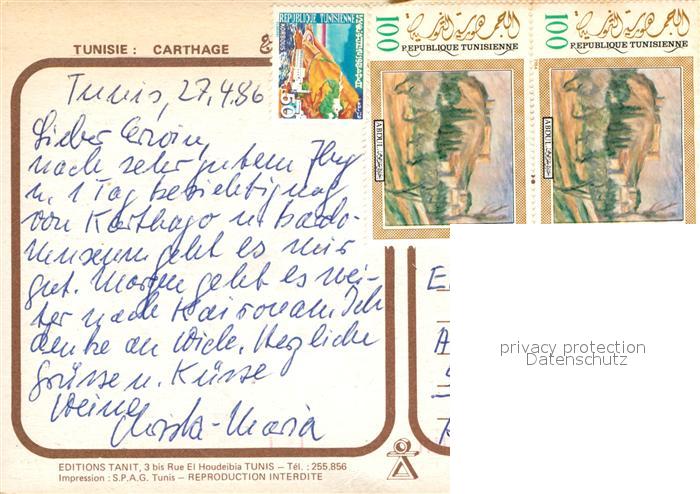 TUNISIE : CARTHAGE
REPUBLIQUE TUNISIENNE
50
100
الجمهورية التونسية
REPUBLIQUE TUNISIENNE
ABDUL
100
الجمهورية التونسية
REPUBLIQUE TUNISIENNE
ABDUL
Tunis, 27.4.86
Lieber Erwin,
nach sehr gutem Flug
u. 1 Tag besichtigung
von Karthago u. Bardo-
museum geht es mir
gut. Morgen geht es wei-
ter nach Kairouan. Ich
denke an Dich. Herzliche
Grüsse u. Küsse
Deine
Christa-Maria
E
A
privacy protection
Datenschutz
EDITIONS TANIT, 3 bis Rue El Houdeibia TUNIS – Tél. : 255.856
Impression : S.P.A.G. Tunis – REPRODUCTION INTERDITE